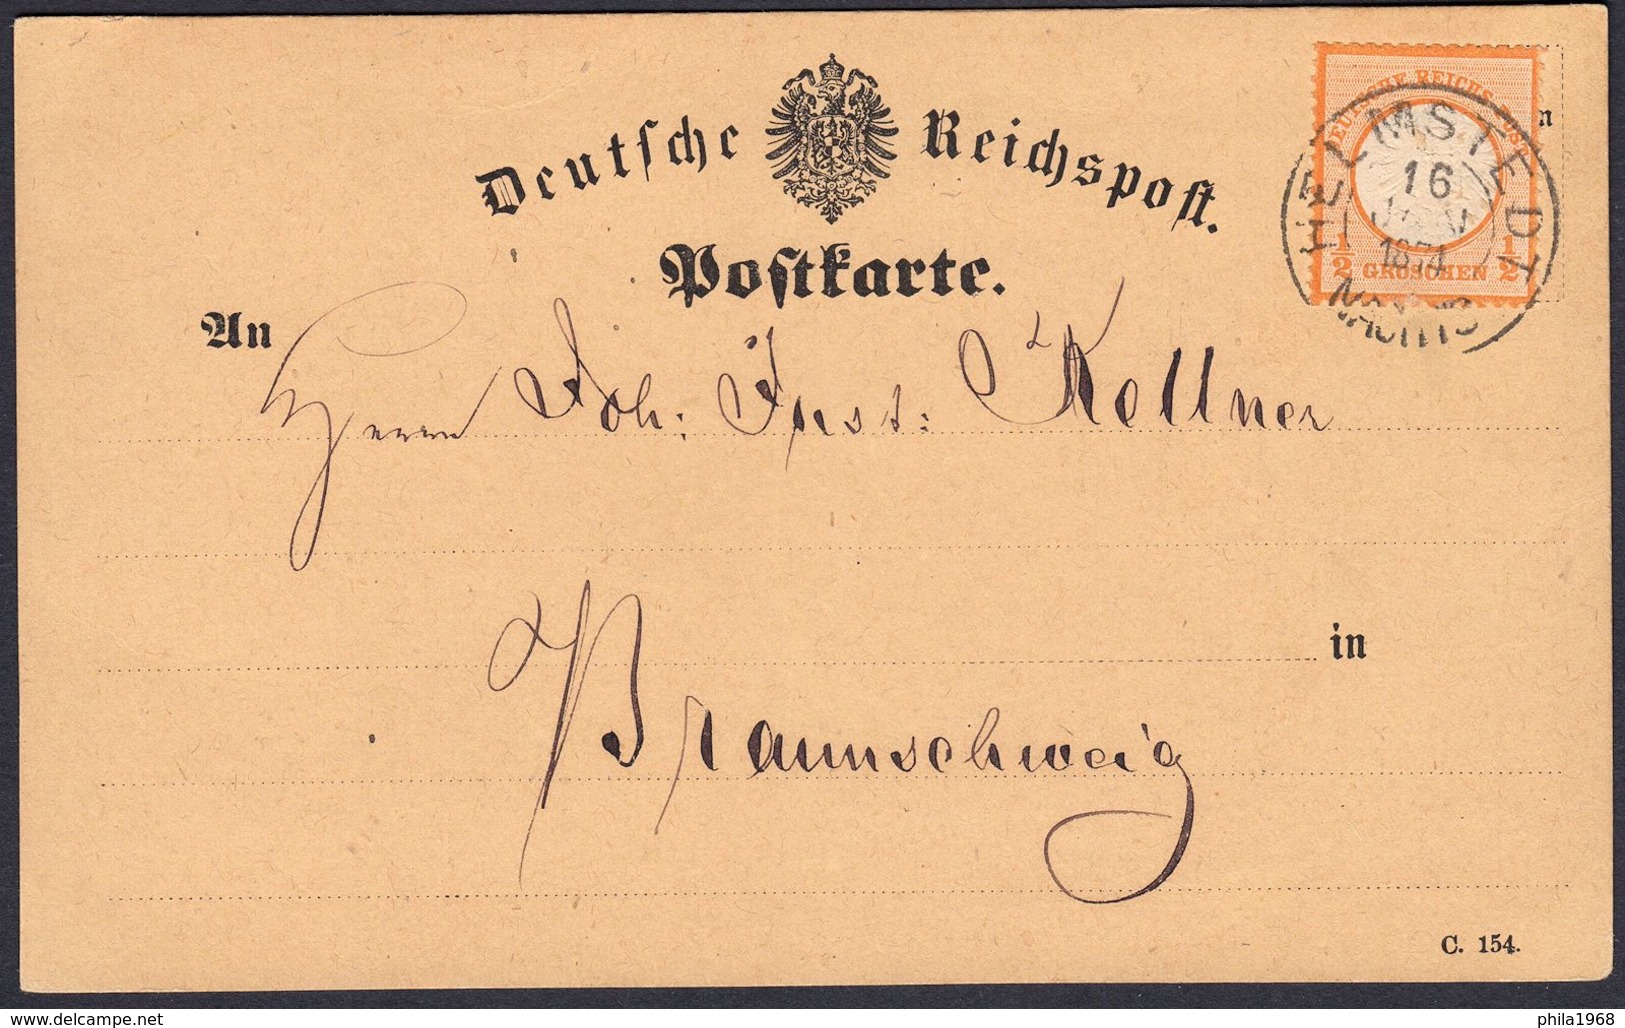 Deutsche Reichspost.
Postkarte.
DEUTSCHE REICHS-POST
½ GROSCHEN ½
HELMSTEDT
16
1874
NACHTS
An
Herrn Joh: Just: Kellner
in
Braunschweig
C. 154.
www.delcampe.net
phila1968